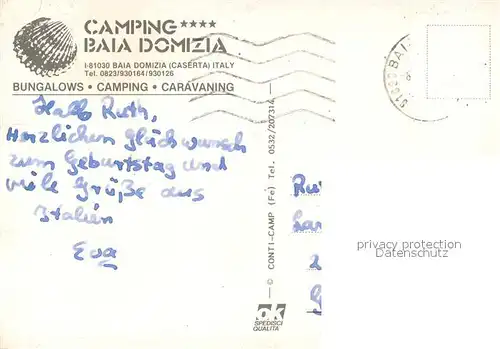 CAMPING ****
BAIA DOMIZIA
I-81030 BAIA DOMIZIA (CASERTA) ITALY
Tel. 0823/930164/930126
BUNGALOWS • CAMPING • CARAVANING
Hallo Ruth,
Herzlichen Glückwunsch
zum Geburtstag und
viele Grüße aus
Italien
Eva
© CONTI-CAMP (Fe) Tel. 0532/207314
OK
SPEDISCI
QUALITA
BAI
Ru
privacy protection
Datenschutz